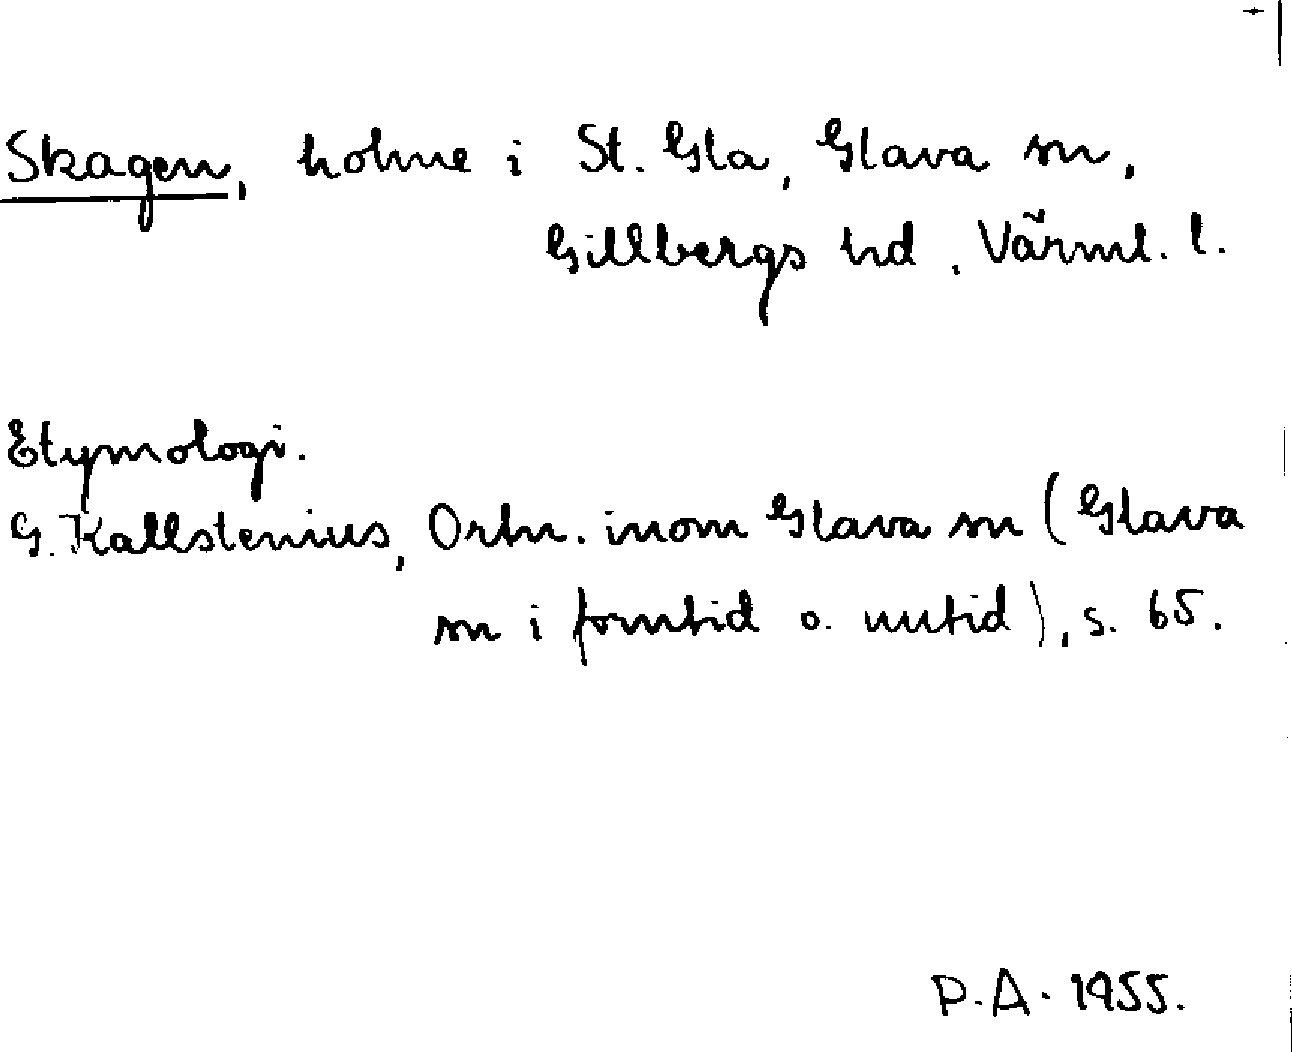 Skagen, holme i St. Gla, Glava sn,
Gillbergs hd, Värml. l.
Etymologi.
G. Kallstenius, Ortn. inom Glava sn (Glava
sn i forntid o. nutid), s. 65.
P.A. 1955.